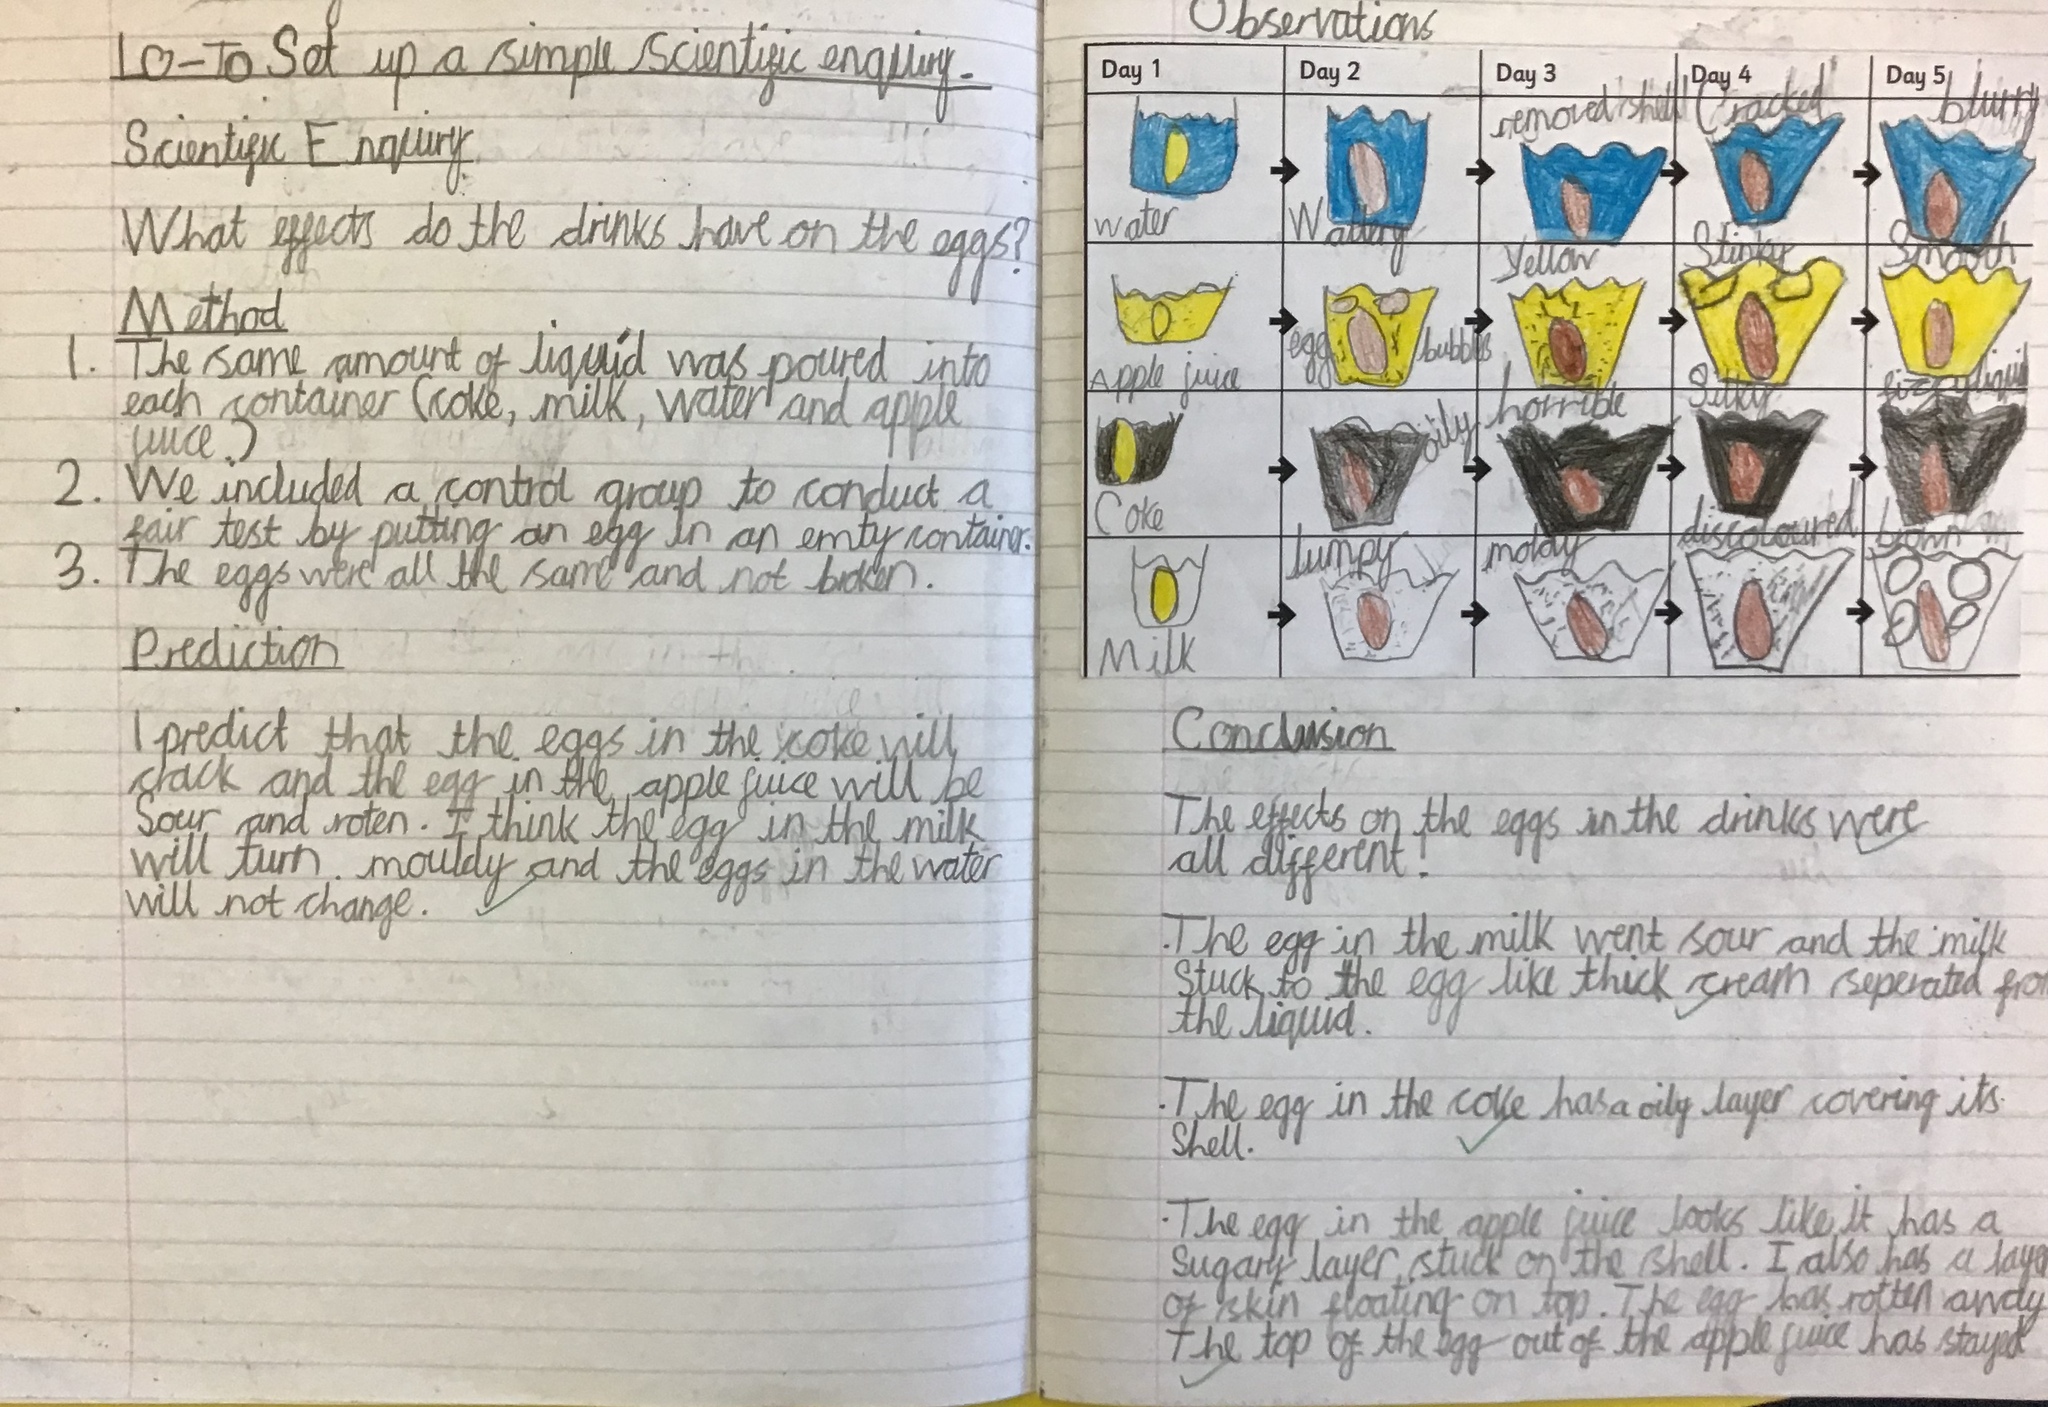 LO-To Set up a simple scientific enquiry.
Scientific Enquiry
What effects do the drinks have on the eggs?
Method
1. The same amount of liquid was poured into
each container (coke, milk, water and apple
juice.)
2. We included a control group to conduct a
fair test by putting an egg in an emty container.
3. The eggs were all the same and not broken.
Prediction
I predict that the eggs in the coke will
crack and the egg in the apple juice will be
Sour and roten. I think the egg in the milk
will turn mouldy and the eggs in the water
will not change.
Observations
Day 1 Day 2 Day 3 Day 4 Day 5
removed shell Cracked blurry
water Wattery
Yellow Stinky Smooth
egg bubbles
Apple juice
oily horrible Silky fizzy liquid
Coke
lumpy moldy discoloured brown
Milk
Conclusion
The effects on the eggs in the drinks were
all different!
.The egg in the milk went sour and the milk
Stuck to the egg like thick cream seperated from
the liquid.
.The egg in the coke has a oily layer covering its
Shell.
.The egg in the apple juice looks like it has a
Sugary layer stuck on the shell. I also has a laye
of skin floating on top. The egg has rotten
The top of the egg out of the apple juice has stayed